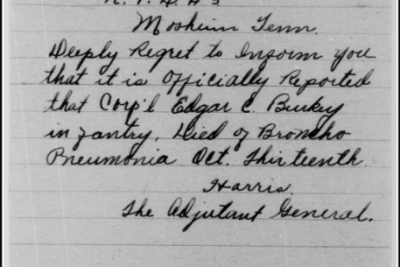 Mosheim Tenn.
Deeply Regret to Inform you
that it is Officially Reported
that Corp'l Edgar C. Burkey
infantry, Died of Broncho
Pneumonia Oct. Thirteenth
Harris.
The Adjutant General.